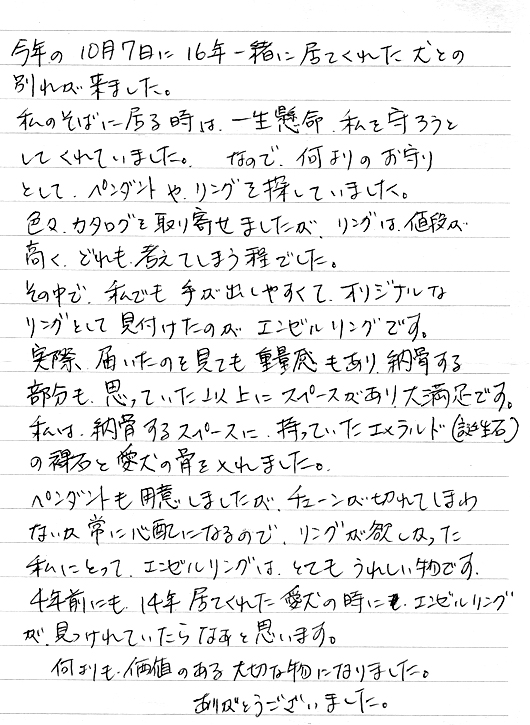 今年の 10月7日に 16年一緒に居てくれた犬との
別れが来ました。
私のそばに居る時は、一生懸命、私を守ろうと
してくれていました。 なので、何よりのお守り
として、ペンダントや、リングを探していました。
色々、カタログを取り寄せましたが、リングは、値段が
高く、どれも、考えてしまう程でした。
その中で、私でも 手が出しやすくて、オリジナルな
リングとして見付けたのが エンゼルリングです。
実際、届いたのを見ても 重量感もあり、納骨する
部分も、思っていた以上に スペースがあり、大満足です。
私は、納骨するスペースに、持っていたエメラルド(誕生石)
の裸石と愛犬の骨を入れました。
ペンダントも用意しましたが、チェーンが切れてしまわ
ないか 常に心配になるので、リングが欲しかった
私にとって、エンゼルリングは、とても うれしい物です。
4年前にも、14年 居てくれた 愛犬の時に、エンゼルリング
が、見つけれていたらなぁと思います。
何よりも、価値のある 大切な物になりました。
ありがとうございました。